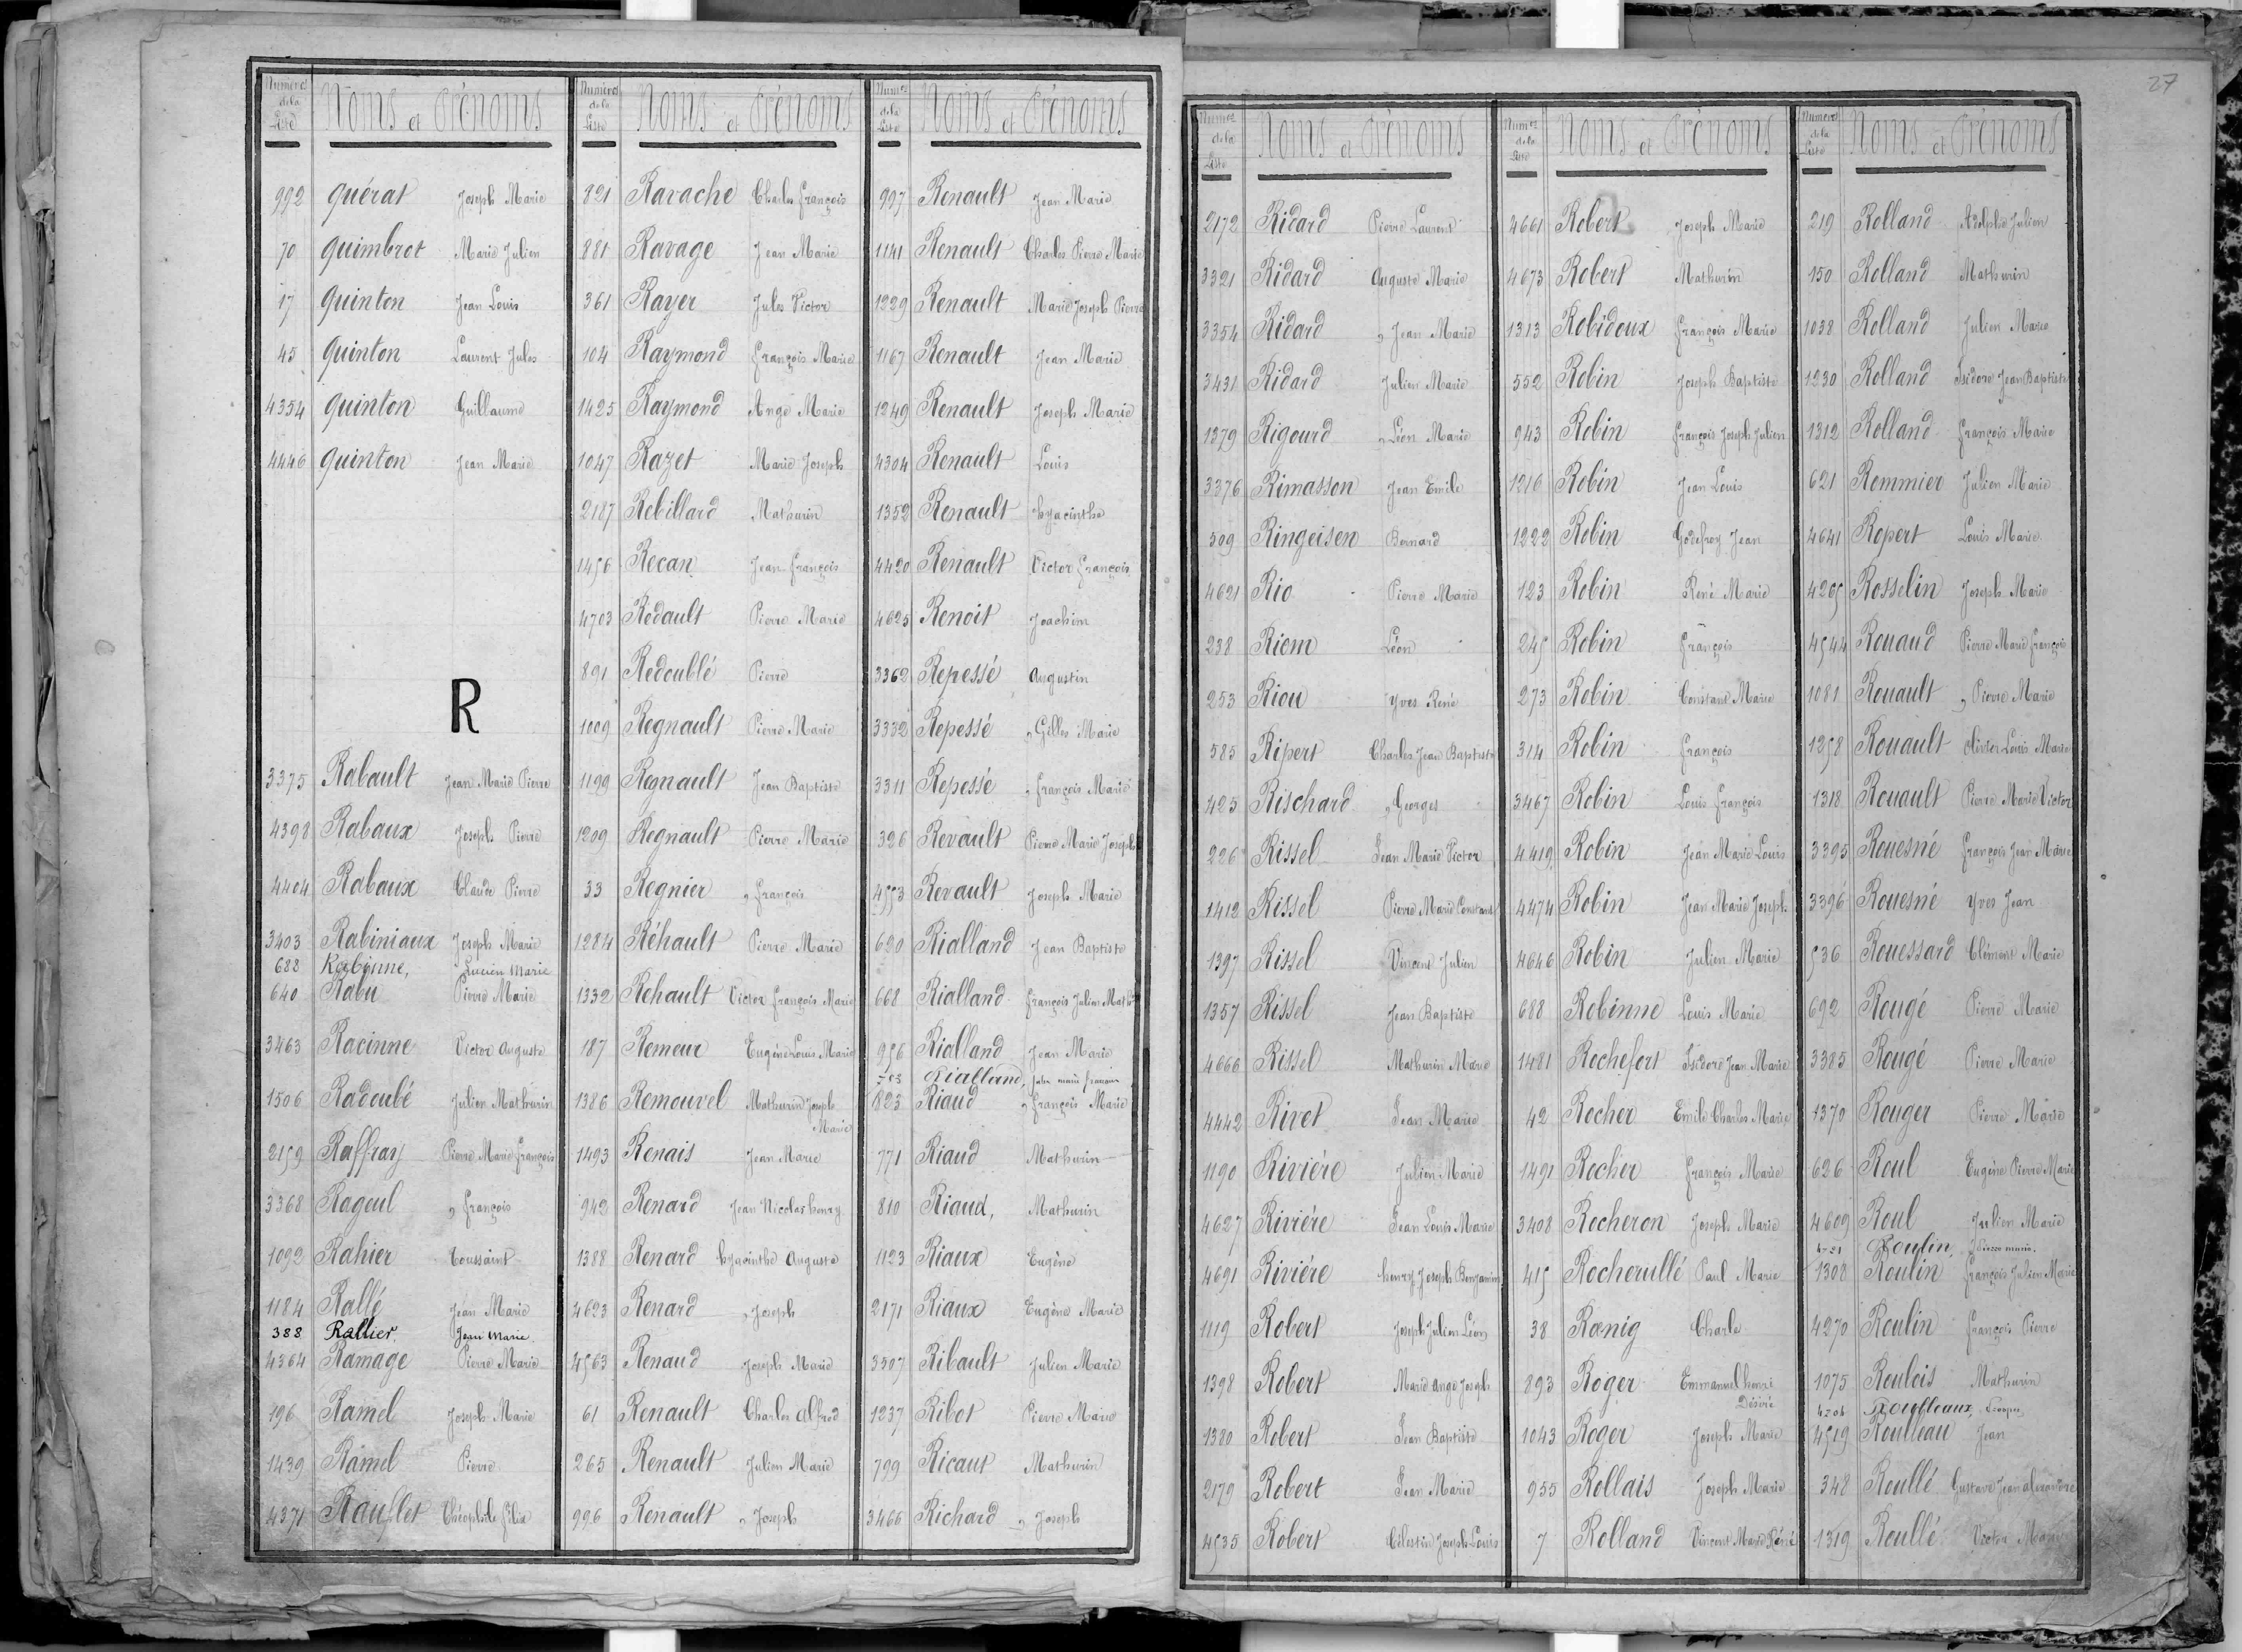 Numéros de la Liste Noms et Prénoms
992 Quérat Joseph Marie
70 Quimbrot Marie Julien
17 Quinton Jean Louis
45 Quinton Laurent Jules
4354 Quinton Guillaume
4446 Quinton Jean Marie
R
3375 Rabault Jean Marie Pierre
4398 Rabaux Joseph Pierre
4404 Rabaux Claude Pierre
3403 Rabiniaux Joseph Marie
688 Rabinne, Lucien Marie
640 Rabu Pierre Marie
3463 Racinne Victor Auguste
1506 Radoubé Julien Mathurin
2159 Raffray Pierre Marie François
3368 Rageul " François
1092 Rahier Toussaint
1184 Rallé Jean Marie
388 Rallier, Jean Marie.
4364 Ramage Pierre Marie
196 Ramel Joseph Marie
1439 Ramel Pierre
4371 Rauflet Théophile Félix
Numéros de la Liste Noms et Prénoms
821 Ravache Charles François
881 Ravage Jean Marie
361 Rayer Jules Victor
104 Raymond François Marie
1425 Raymond Ange Marie
1047 Razet Marie Joseph
2187 Rebillard Mathurin
1456 Recan Jean François
4703 Redault Pierre Marie
891 Redoublé Pierre
1009 Regnault Pierre Marie
1199 Regnault Jean Baptiste
1209 Regnault Pierre Marie
33 Regnier " François
1284 Réhault Pierre Marie
1332 Rehault Victor François Marie
187 Remeur Eugène Louis Marie
1386 Remouvel Mathurin Joseph
Marie
1493 Renais Jean Marie
942 Renard Jean Nicolas henry
1388 Renard hyacinthe Auguste
4623 Renard " Joseph
4563 Renaud Joseph Marie
61 Renault Charles Alfred
265 Renault Julien Marie
996 Renault " Joseph
Numos de la Liste Noms et Prénoms
997 Renault Jean Marie
1141 Renault Charles Pierre Marie
1229 Renault Marie Joseph Pierre
1167 Renault Jean Marie
1249 Renault Joseph Marie
4304 Renault Louis
1352 Renault hyacinthe
4420 Renault Victor François
4625 Renoit Joachim
3362 Repessé Augustin
3332 Repessé " Gilles Marie
3311 Repessé " François Marie
326 Revault Pierre Marie Joseph
4553 Revault Joseph Marie
620 Rialland Jean Baptiste
668 Rialland François Julien Math
956 Rialland Jean Marie
Rialland,
823 Riaud " François Marie
771 Riaud Mathurin
810 Riaud, Mathurin
1123 Riaux Eugène
2171 Riaux Eugène Marie
3507 Ribault Julien Marie
1237 Ribot Pierre Marie
799 Ricaut Mathurin
3466 Richard " Joseph
27
Numos de la Liste Noms et Prénoms
2172 Ridard Pierre Laurent
3321 Ridard Auguste Marie
3354 Ridard " Jean Marie
3431 Ridard Julien Marie
1379 Rigourd " Léon Marie
3376 Rimasson Jean Emile
509 Ringeisen Bernard
4621 Rio Pierre Marie
238 Riom Léon
253 Riou Yves René
585 Ripert Charles Jean Baptiste
425 Rischard " Georges
226 Rissel Jean Marie Victor
1412 Rissel Pierre Marie Constant
1397 Rissel Vincent Julien
1357 Rissel Jean Baptiste
4666 Rissel Mathurin Marie
4442 Rivet Jean Marie
1190 Rivière Julien Marie
4627 Rivière Jean Louis Marie
4691 Rivière henry Joseph Benjamin
1119 Robert Joseph Julien Léon
1398 Robert Marie Ange Joseph
1380 Robert Jean Baptiste
2179 Robert Jean Marie
4535 Robert Célestin Joseph Louis
Numos de la Liste Noms et Prénoms
4661 Robert Joseph Marie
4673 Robert Mathurin
1313 Robidoux François Marie
552 Robin Joseph Baptiste
943 Robin François Joseph Julien
1216 Robin Jean Louis
1222 Robin Godefroy Jean
123 Robin René Marie
245 Robin François
273 Robin Constant Marie
314 Robin François
3467 Robin Louis François
4419 Robin Jean Marie Louis
4474 Robin Jean Marie Joseph
4646 Robin Julien Marie
688 Robinne Louis Marie
1481 Rochefort Isidore Jean Marie
42 Rocher Emile Charles Marie
1491 Rocher François Marie
3408 Rocheron Joseph Marie
415 Rocherullé Paul Marie
38 Rœnig Charle
893 Roger Emmanuel henri
Désiré
1043 Roger Joseph Marie
955 Rollais Joseph Marie
7 Rolland Vincent Marie Réné
Numéros de la Liste Noms et Prénoms
219 Rolland Adolphe Julien
150 Rolland Mathurin
1038 Rolland Julien Marie
1230 Rolland Isidore Jean Baptiste
1312 Rolland François Marie
621 Rommier Julien Marie
4641 Ropert Louis Marie
4265 Rosselin Joseph Marie
4544 Rouaud Pierre Marie François
1081 Rouault " Pierre Marie
1258 Rouault Olivier Louis Marie
1318 Rouault Pierre Marie Victor
3395 Rouesné François Jean Marie
3396 Rouesné Yves Jean
536 Rouessard Clément Marie
692 Rougé Pierre Marie
3385 Rougé Pierre Marie
1370 Rouger Pierre Marie
626 Roul Eugène Pierre Marie
4609 Roul Julien Marie
Roulin, Pierre marie.
1308 Roulin François Julien Marie
4270 Roulin François Pierre
1075 Roulois Mathurin
Roulleaux,
4519 Roulleau Jean
348 Roullé Gustave Jean alexandre
1319 Roullé Victor Marie